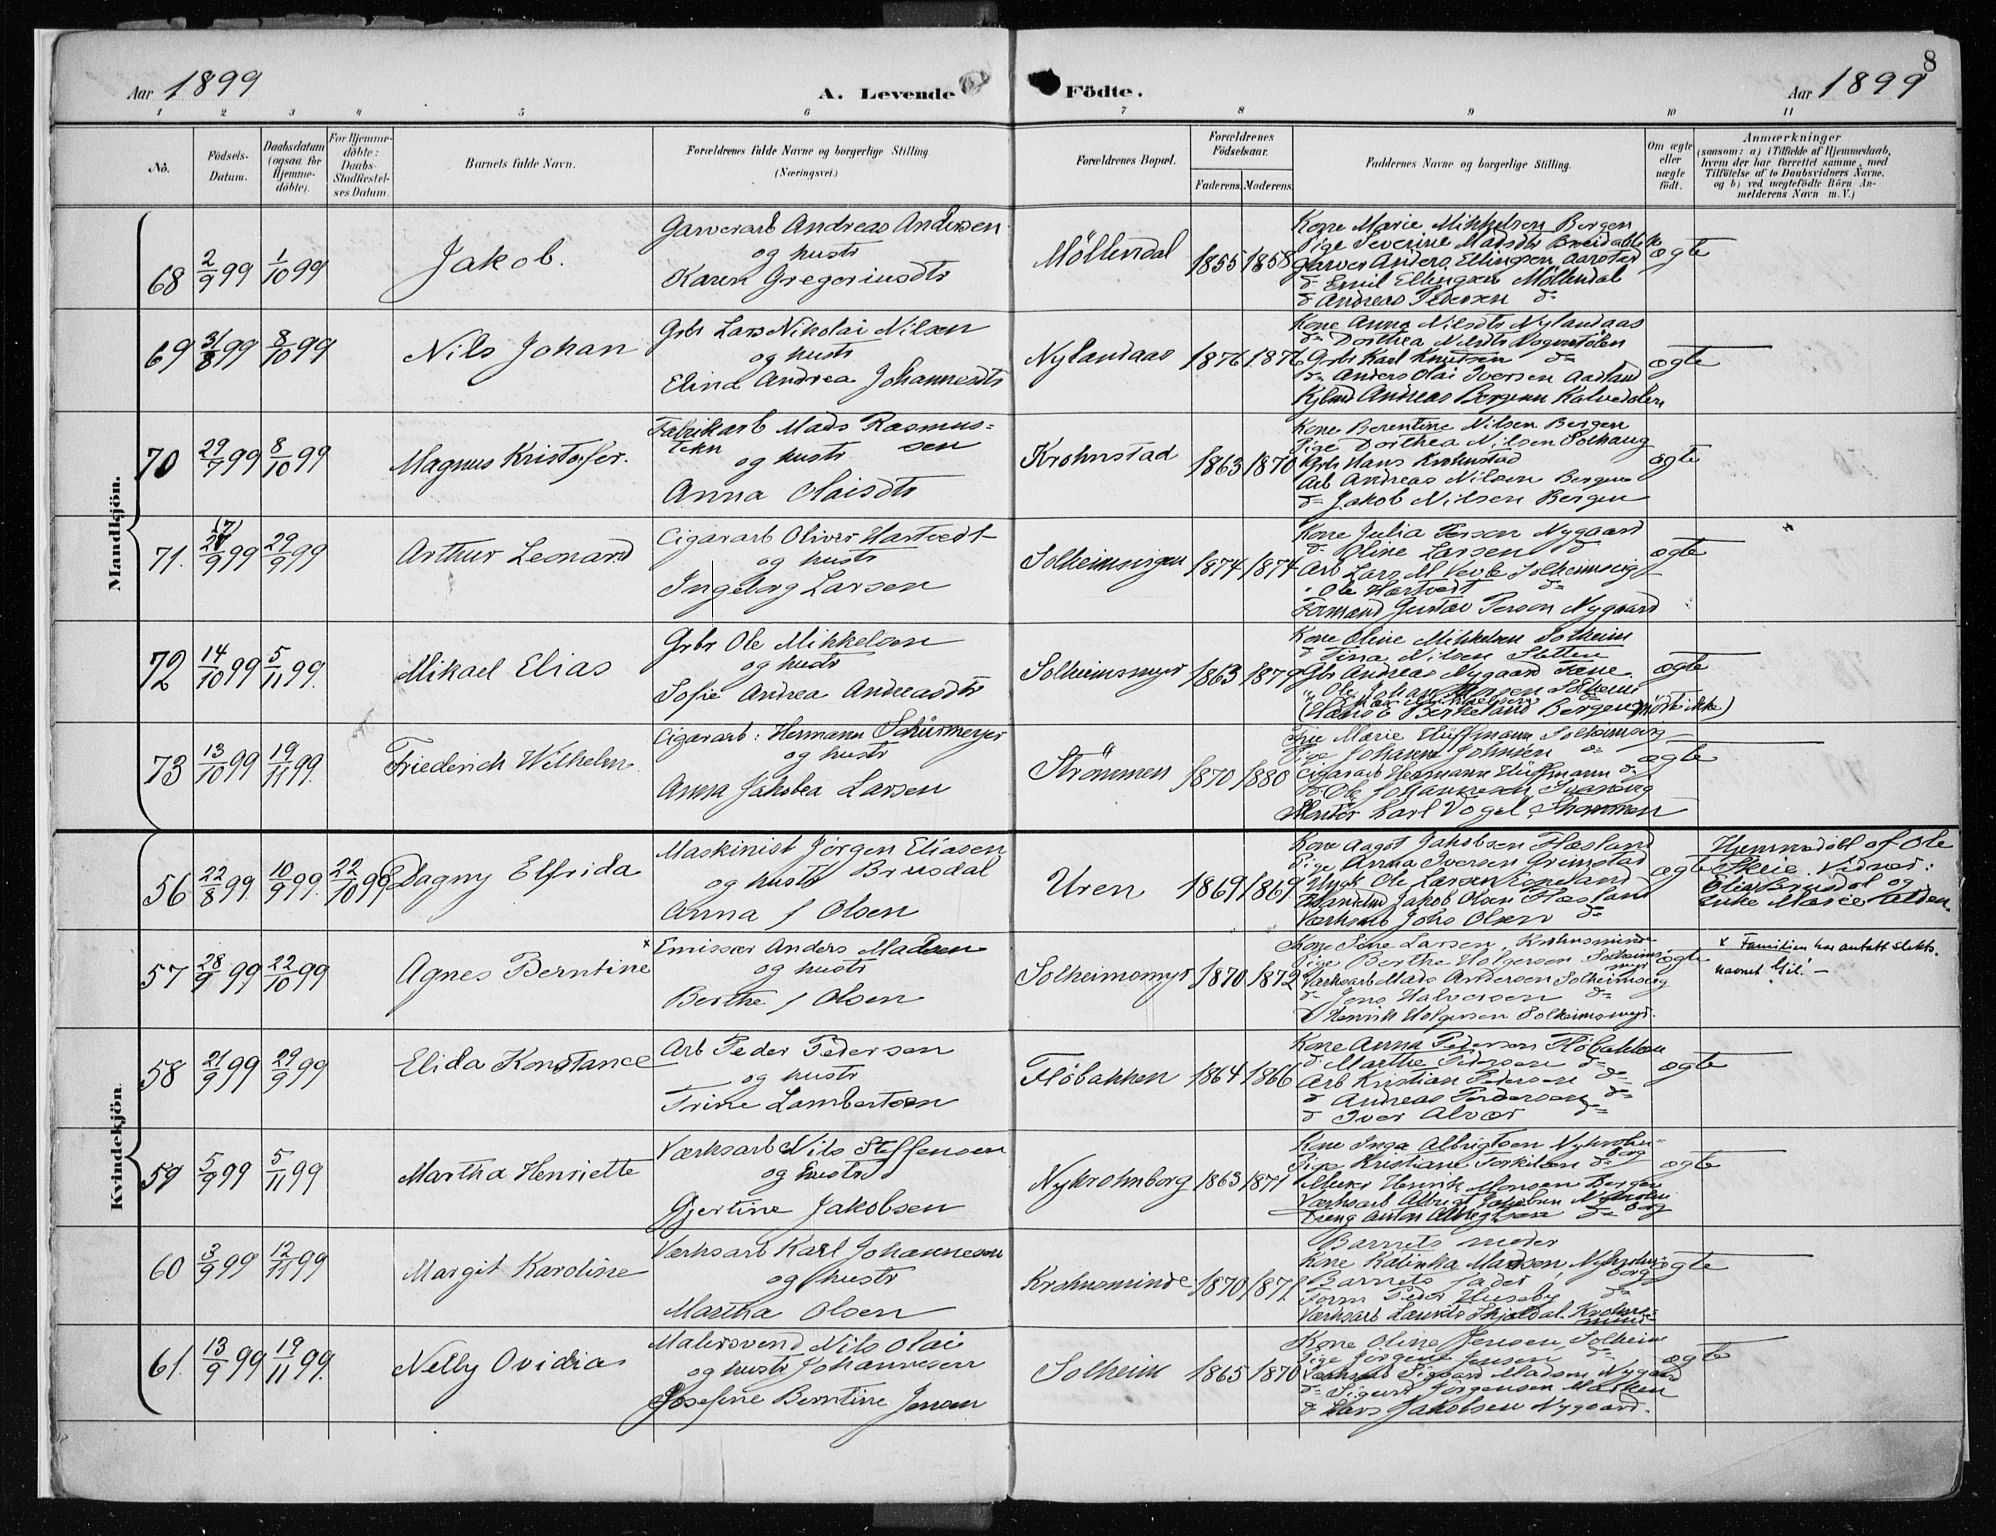 8
Aar 1899 A. Levende Födte. Aar 1899
1 2 3 4 5 6 7 8 9 10 11
No.
Födsels-
Datum.
Daabsdatum
(ogsaa for
Hjemme-
döbte).
For Hjemme-
döbte:
Daabs-
Stadfæstel-
ses Datum.
Barnets fulde Navn.
Forældrenes fulde Navne og borgerlige Stilling
(Næringsvei.)
Forældrenes Bopæl.
Forældrenes
Födselsaar.
Faderens. Moderens.
Faddernes Navne og borgerlige Stilling.
Om ægte
eller
uægte
födt.
Anmærkninger
(saasom: a) i Tilfælde af Hjemmedaab,
hvem der har forrettet samme, med
Tilföielse af to Daabsvidners Navne,
og b) ved uægtefödte Börn An-
melderens Navn m. V.)
Mandkjön.
68 2/9 99 1/10 99 Jakob.
Garverarb Andreas Andersen
og hustr
Karen Gregoriusdtr
Möllendal 1855 1858
Kone Marie Mikkelsen Bergen
Pige Severine Madsdtr
Garver Anders Ellingsen Aarstad
do Emil Ellingsen Möllendal
do Andreas Pedersen do
ægte
69 31/8 99 8/10 99 Nils Johan
Grbr Lars Nikolai Nilsen
og hustr
Elina Andrea Johannesdtr
Nylandaas 1876 1876
Kone Anna Nilsdtr Nylandaas
do Dorthea Nilsdtr
Grbr Karl Knutsen do
do Anders Olai Iversen Aadland
Andreas Borgesen Kalvedalen
ægte
70 29/7 99 8/10 99 Magnus Kristofer.
Fabrikarb Mads Rasmus=
sen
og hustr
Anna Olaisdtr
Krohnstad 1863 1870
Kone Berentine Nilsen Bergen
Pige Dorthea Nilsen Solhaug
Grbr Hans Krohnstad
Arb Andreas Nilsen Bergen
do Jakob Nilsen Bergen
ægte
71. 99 29/9 99 Arthur Leonard
Cigararb Oliver Hartvedt
og hustr
Ingeborg Larsen
Solheimsvigen 1874 1874
Kone Julia Person Nygaard
do Oline Larsen do
Arb Lars M Solheimsvig
" Ole Hartvedt do
Formand Gustav Person Nygaard
ægte
72 14/10 99 5/11 99. Mikael Elias
Grbr Ole Mikkelsen
og hustr
Sofie Andrea Andreasdtr
Solheimsmyr 1863 1879
Kone Oline Mikkelsen Solheim
do Tina Nilsen Sletten
Gbr Andreas Nygaard Fane
" Ole Johan Solheim
Birkeland Bergen mödte ikke)
ægte
73 13/10 99 19/11 99. Friederich Wilhelm
Cigararb: Hermann Schürmeyer
og hustr
Anna Jakobea Larsen
Strömmen 1870 1880
Fru Marie Hüffmann Solheimsvig
Pige Johanne Johnsen do
Cigararb Hermann Hüffmann do
do Ole Johannesen
Karl Vogel, Strömmen
ægte
Kvindekjön.
56 22/8 99. 10/9 99. 22/10 99 Dagny Elfrida
Maskinist Jörgen Eliasen
Brusdal
og hustr
Anna f Olsen
Uren 1869 1869
Kone Aagot Jakobsen Fløsland
Pige Anna Iversen Grimstad
Ole Larsen
Jakob Olsen
Værksarb Johs Olsen do
ægte
Hjemmedöbt af Ole
Skeie. Vidner:
Elias Brusdal og
Marie
57 28/9 99 22/10 99 Agnes Berntine
x Emissær Anders Madsen
og hustr
Berthe f Olsen
Solheimsmyr 1870 1872
Kone Larsen, Krohnsminde
Pige Berthe Holgersen Solheims
myr
Værksarb Mads Andersen Solheimsvig
do Jens Halvorsen do
Henrik Holgersen Solheimsmyr.
ægte
x Familien har antatt slekts-
navnet Gil. —
58 21/9 99 29/9 99 Elida Konstance
Arb Peder Pedersen
og hustr
Trine Lambertsen
Flöbakken 1864 1866
Kone Anna Pedersen Flöbakken
do Marthe Pedersen do
Arb Kristian Pedersen do
do Andreas Pedersen do
do Iver Alvær do
ægte
59 5/9 99 5/11 99 Martha Henriette
Værksarb Nils Steffensen
og hustr
Gjertine Jakobsen
Nykrohnborg 1863 1871
Kone Inga Albrigtsen Nykrohn-
borg
Pige Kristiane Torkilsen do
Murer Henrik Monsen Bergen
Værksarb Albrigt Jakobsen
Dreng Anton Albrigtsen do
ægte
60 3/9 99 12/11 99 Margit Karoline
Værksarb Karl Johannesen
og hustr
Martha Olsen
Krohnsminde 1870 1871.
Barnets moder
Kone Kalinka Madsen, Nykrohn
borg
Barnets fader
Form Peder Huseby do
Værksarb Laurits Krohns-
minde
ægte
61. 13/9 99 19/11 99. Nelly Ovidia
Malersvend Nils Olai
og hustr Johannesen
Josefine Berntine Jensen
Solheim 1865 1870
Kone Oline Jensen Solheim
Pige Jörgine Jensen do
Værksarb Sigvard Madsen Nygaard
do Sigurd Jörgensen
do Lars Jakobsen Nygaard.
ægte